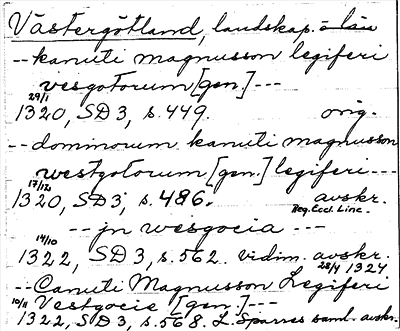 Västergötland, landskap. o län
--kanuti magnusson legiferi
vesgotorum [gen.]---
29/1
1320, SD 3, s. 449. orig.
--dominorum kanuti magnusson
westgotorum [gen.] legiferi---
17/12
1320, SD 3, s. 486. avskr.
Reg. Eccl. Linc.
--jn wesgocia---
14/10
1322, SD 3, s. 562. vidim. avskr.
28/4 1324
--Canuti Magnusson Legiferi
Vestgocie [gen.]---
10/11
1322, SD 3, s. 568. L Sparres saml. avskr.